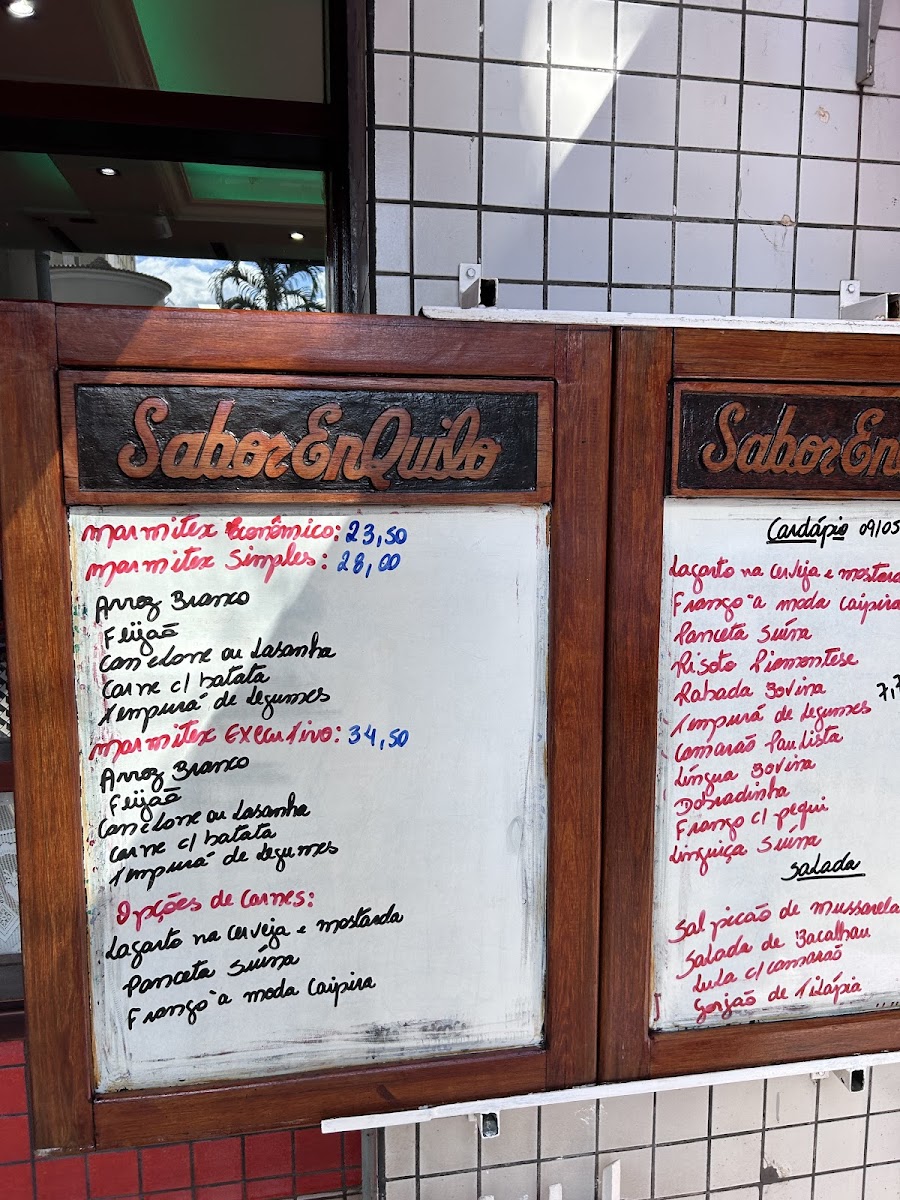 SaborEnQuilo
Marmitex Econômico: 23,50
Marmitex Simples: 28,00
Arroz Branco
Feijão
Canelone ou Lasanha
Carne c/ batata
Tempurá de Legumes
Marmitex Executivo: 34,50
Arroz Branco
Feijão
Canelone ou Lasanha
Carne c/ batata
Tempurá de Legumes
Opções de Carnes:
Lagarto na cerveja e mostarda
Panceta Suína
Frango a moda Caipira
SaborEn
Cardápio 09/05
Lagarto na cerveja e mostarda
Frango a moda Caipira
Panceta Suína
Risoto Piemontese
Rabada Bovina
Tempurá de legumes 7,
Camarão Paulista
Língua Bovina
Dobradinha
Frango c/ pequi
Linguiça Suína
Salada
Salpicão de Mussarela
Salada de Bacalhau
Lula c/ camarão
Gorjão de Tilápia